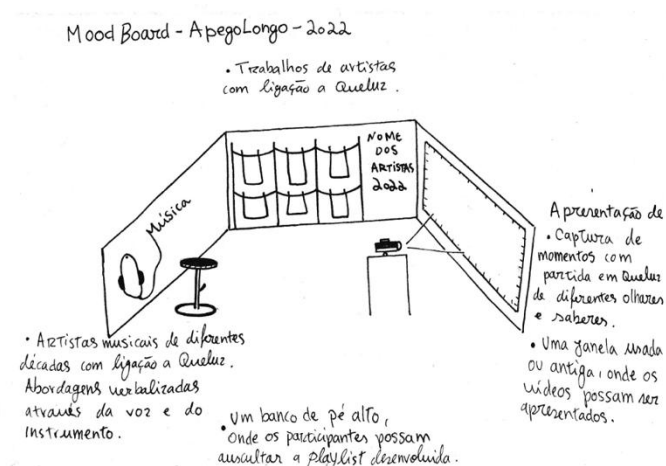 Mood Board - ApegoLongo - 2022
• Trabalhos de artistas
com ligação a Queluz.
NOME
DOS
ARTISTAS
2022
Música
Apresentação de
• Captura de
momentos com
partida em Queluz
de diferentes olhares
e saberes.
• Uma janela usada
ou antiga, onde os
vídeos possam ser
apresentados.
• Artistas musicais de diferentes
décadas com ligação a Queluz.
Abordagens verbalizadas
através da voz e do
instrumento.
• Um banco de pé alto,
onde os participantes possam
auscultar a playlist desenvolvida.